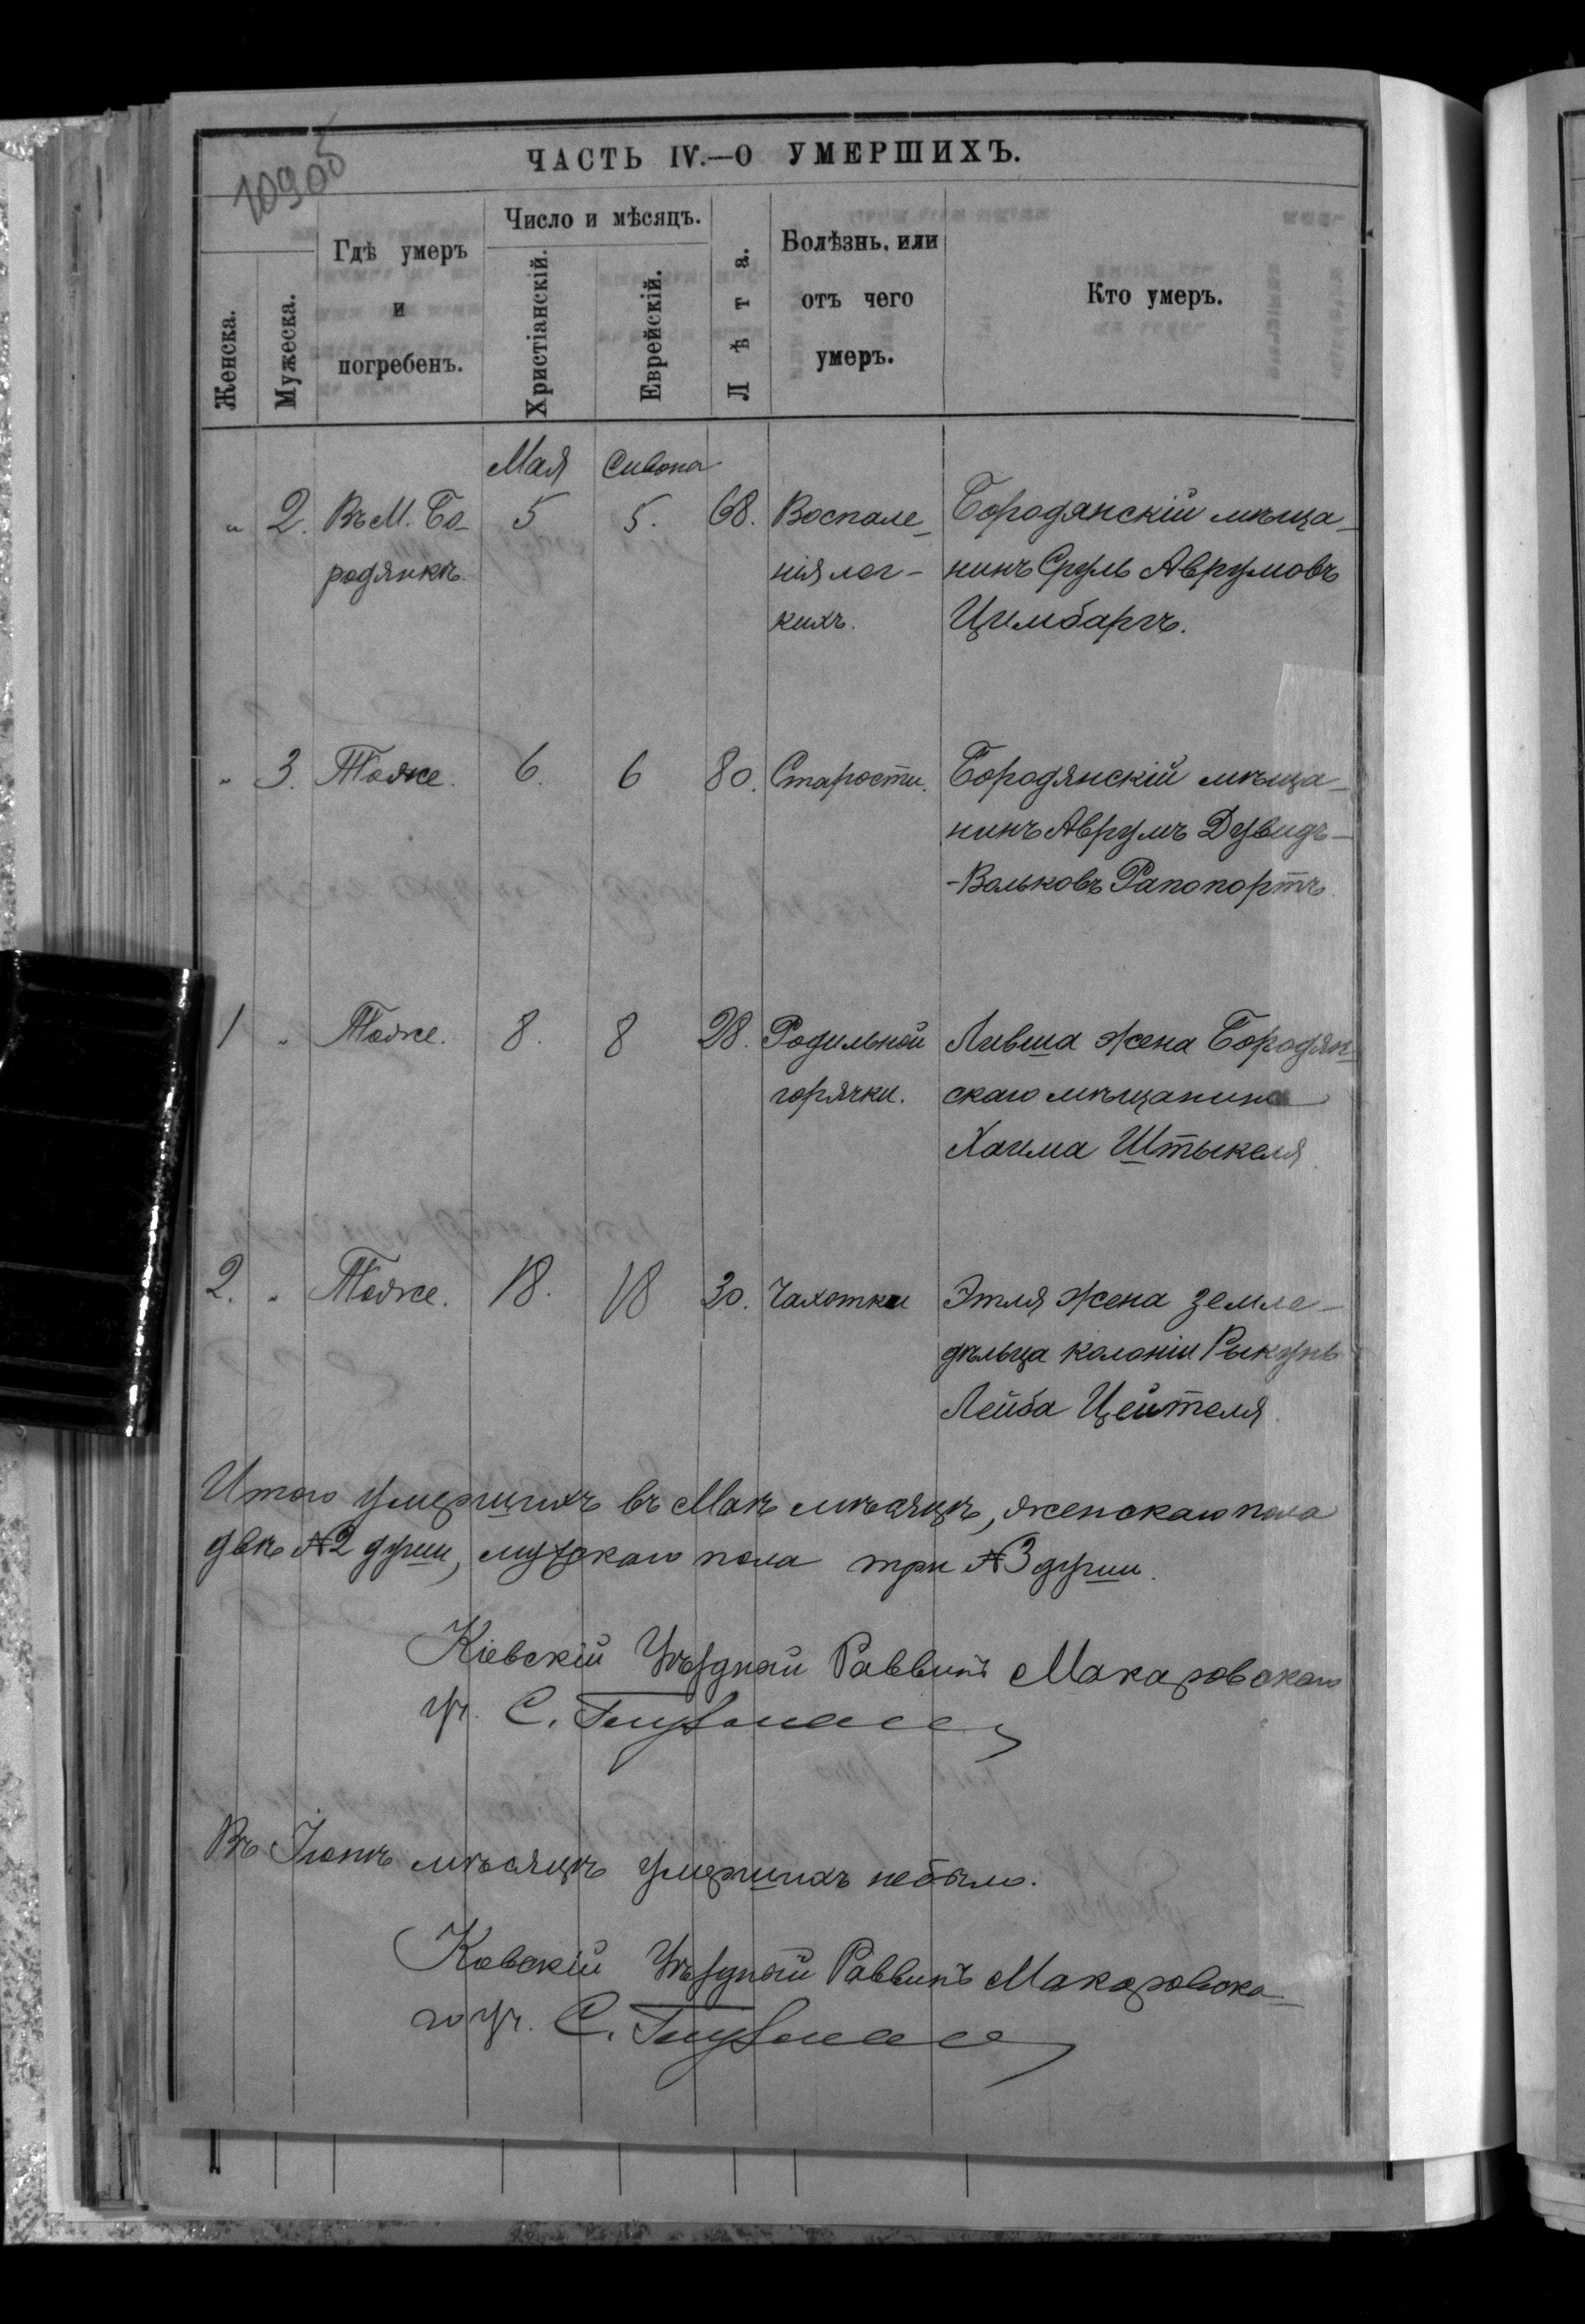 10900
5
ЧАСТЬ IV.—О УМЕРШИХЪ.
Женска.
Мужеска.
Гдѣ умеръ
и
погребенъ.
Число и мѣсяцъ.
Христіанскій.
Еврейскій.
Лѣта.
Болѣзнь, или
отъ чего
умеръ.
Кто умеръ.
Мая Сивона
" 2. Въ М. Бо- 5 5. 68. Воспале- Бородянскій мѣща-
родянкѣ. нія лег- нинъ Сруль Аврумовъ
кихъ. Цимбаргъ.
" 3. Тоже. 6. 6 80. Старости. Бородянскій мѣща-
нинъ Аврумъ Дувидъ-
-Вольковъ Рапопортъ.
1 " Тоже. 8. 8 28. Родильной Ливша жена Бородян-
горячки. скаго мѣщанина
Хаима Штыкеля.
2. " Тоже. 18. 18 30. Чахотки Этля жена земле-
дѣльца колоніи Рыкунь
Лейба Цейтеля.
Итого умершихъ въ Маѣ мѣсяцѣ, женскаго пола
двѣ №2 души, мужскаго пола три №3 души.
Кіевскій Уѣздный Раввинъ Макаровскаго
уч. С.
Въ Іюнѣ мѣсяцѣ умершихъ небыло.
Кевскій Уѣздный Раввинъ Макаровска-
го уч. С.